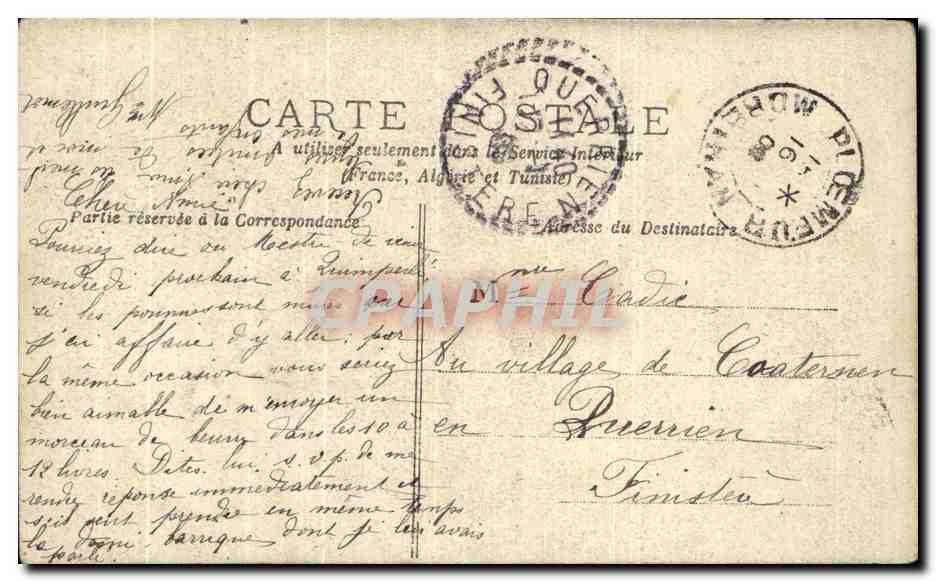 CARTE POSTALE
A utiliser seulement dans le Service Intérieur
(France, Algérie et Tunisie)
Partie réservée à la Correspondance
Adresse du Destinataire
QUERRIEN
FINISTÈRE
PLŒMEUR
MORBIHAN
16
09
Chère Amie
Pourriez dire au Mestre de venir
vendredi prochain à Quimperlé
si les pommes sont mures ou
j'ai affaire d'y aller, par
la même occasion vous seriez
bien aimable de m'envoyer un
morceau de beurre dans les 10 à
12 livres. Dites lui s.v.p. de me
rendre réponse immédiatement et
s'il peut prendre en même temps
la demi-barrique dont je lui avais
parlé.
Recevez chère Amie
Mme Cradic
Au village de Coaternen
en Querrien
Finistère
CPAPHIL